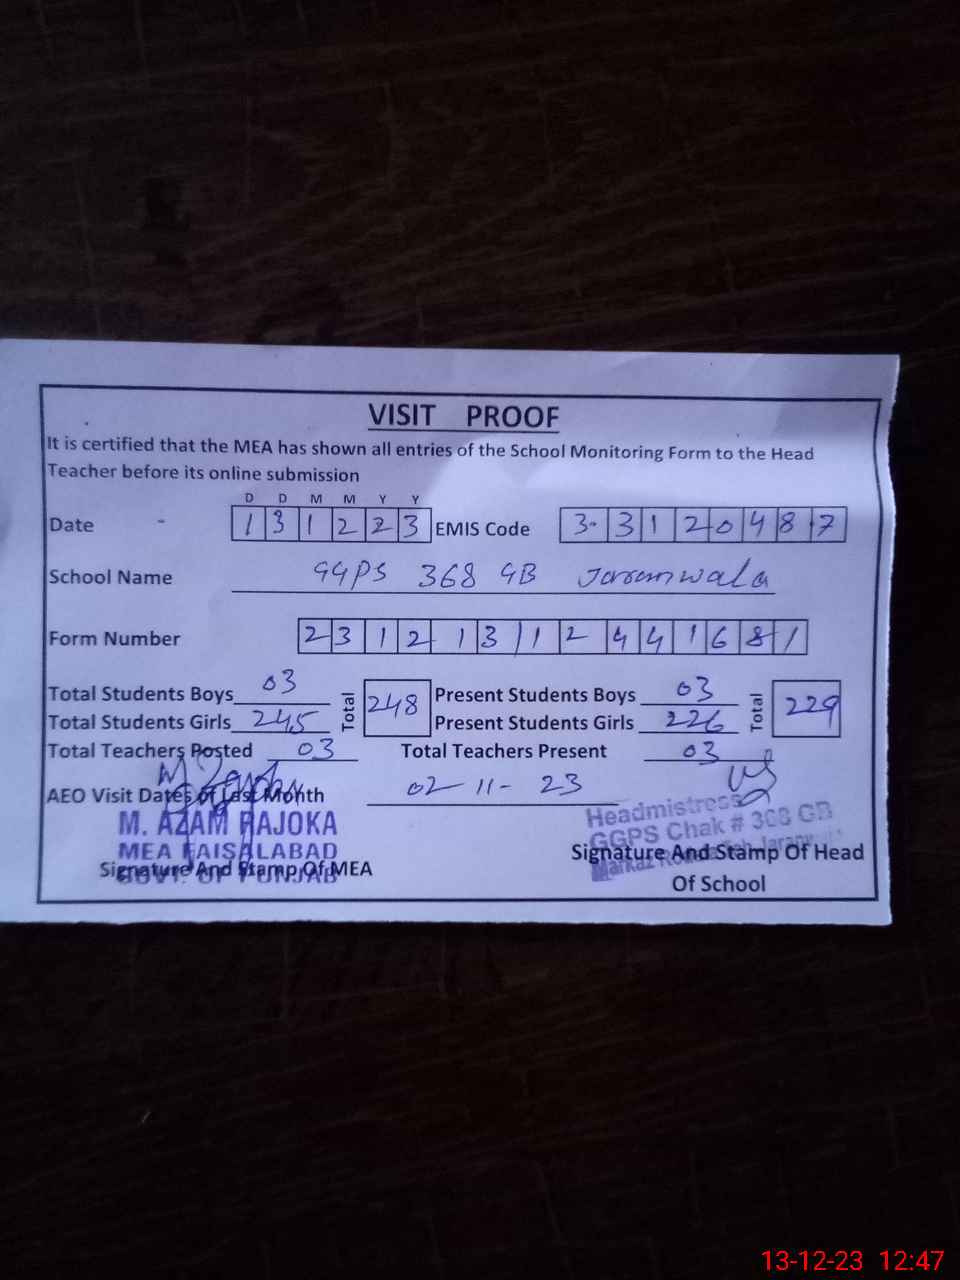 VISIT PROOF
It is certified that the MEA has shown all entries of the School Monitoring Form to the Head
Teacher before its online submission
D D M M Y Y
Date - 1 3 1 2 2 3 EMIS Code 3 3 1 2 0 4 8 7
School Name GGPS 368 GB Jaranwala
Form Number 2 3 1 2 1 3 1 2 4 4 1 6 8 1
Total Students Boys 03 Total 248 Present Students Boys 03 Total 229
Total Students Girls 245 Present Students Girls 226
Total Teachers Posted 03 Total Teachers Present 03
AEO Visit Dates of Last Month 02-11-23
M. AZAM RAJOKA
MEA FAISALABAD
GOVT. OF PUNJAB
Signature And Stamp Of MEA
Headmistress
GGPS Chak # 368 GB
Markaz
Signature And Stamp Of Head
Of School
13-12-23 12:47